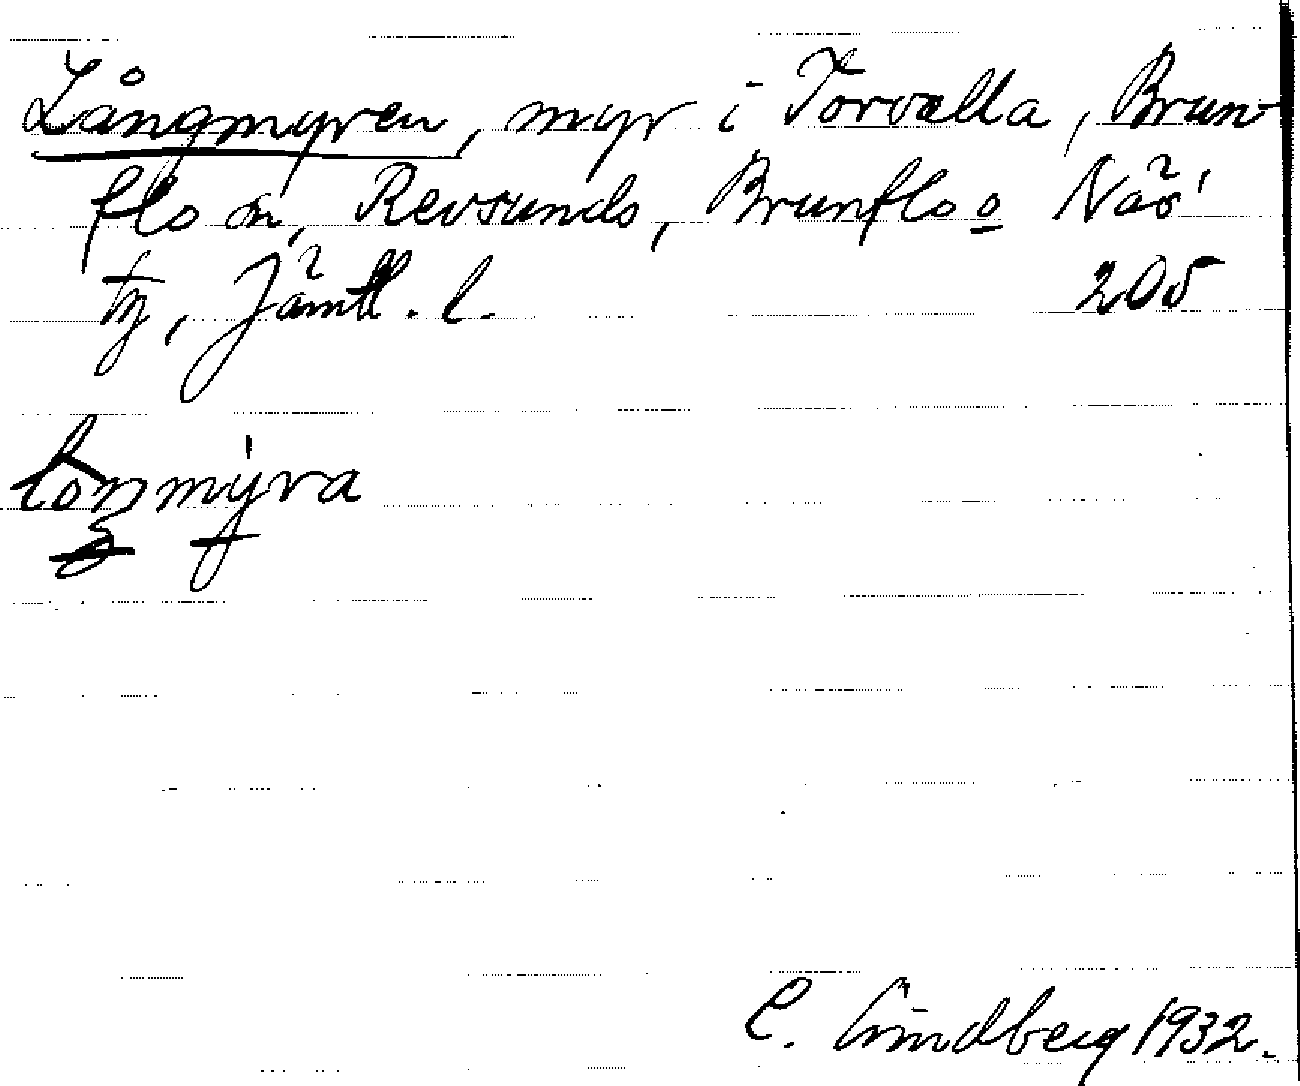 Långmyren, myr i Torvalla, Brun-
flo sn, Revsunds, Brunflo o Näs'
tg, Jämtl. l. 205
C. Lindberg 1932.